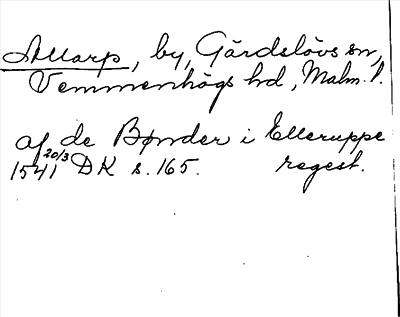 Allarp, by, Gärdslövs sn,
Vemmenhögs hd, Malm. l.
af de Bønder i Elleruppe
1541 20/3 DK s. 165. regest.